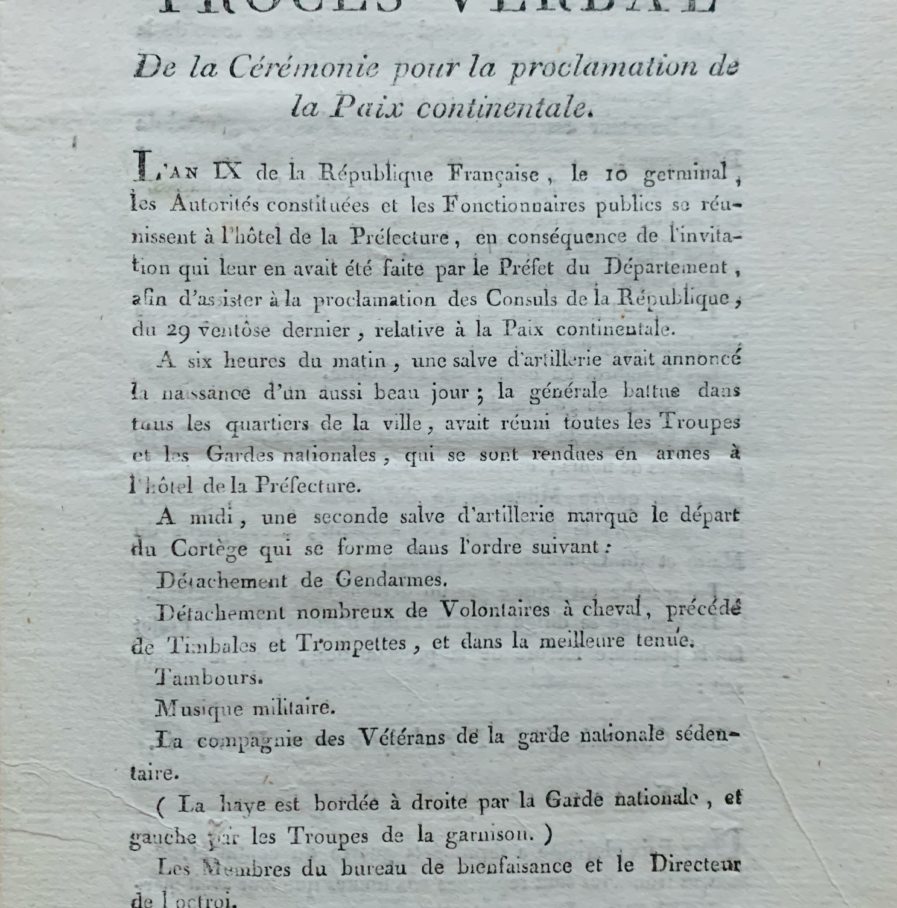 PROCÈS VERBAL
De la Cérémonie pour la proclamation de
la Paix continentale.
L'AN IX de la République Française, le 10 germinal,
les Autorités constituées et les Fonctionnaires publics se réu-
nissent à l'hôtel de la Préfecture, en conséquence de l'invita-
tion qui leur en avait été faite par le Préfet du Département,
afin d'assister à la proclamation des Consuls de la République,
du 29 ventôse dernier, relative à la Paix continentale.
A six heures du matin, une salve d'artillerie avait annoncé
la naissance d'un aussi beau jour; la générale battue dans
tous les quartiers de la ville, avait réuni toutes les Troupes
et les Gardes nationales, qui se sont rendues en armes à
l'hôtel de la Préfecture.
A midi, une seconde salve d'artillerie marque le départ
du Cortège qui se forme dans l'ordre suivant:
Détachement de Gendarmes.
Détachement nombreux de Volontaires à cheval, précédé
de Timbales et Trompettes, et dans la meilleure tenue.
Tambours.
Musique militaire.
La compagnie des Vétérans de la garde nationale séden-
taire.
( La haye est bordée à droite par la Garde nationale, et
gauche par les Troupes de la garnison. )
Les Membres du bureau de bienfaisance et le Directeur
de l'octroi.